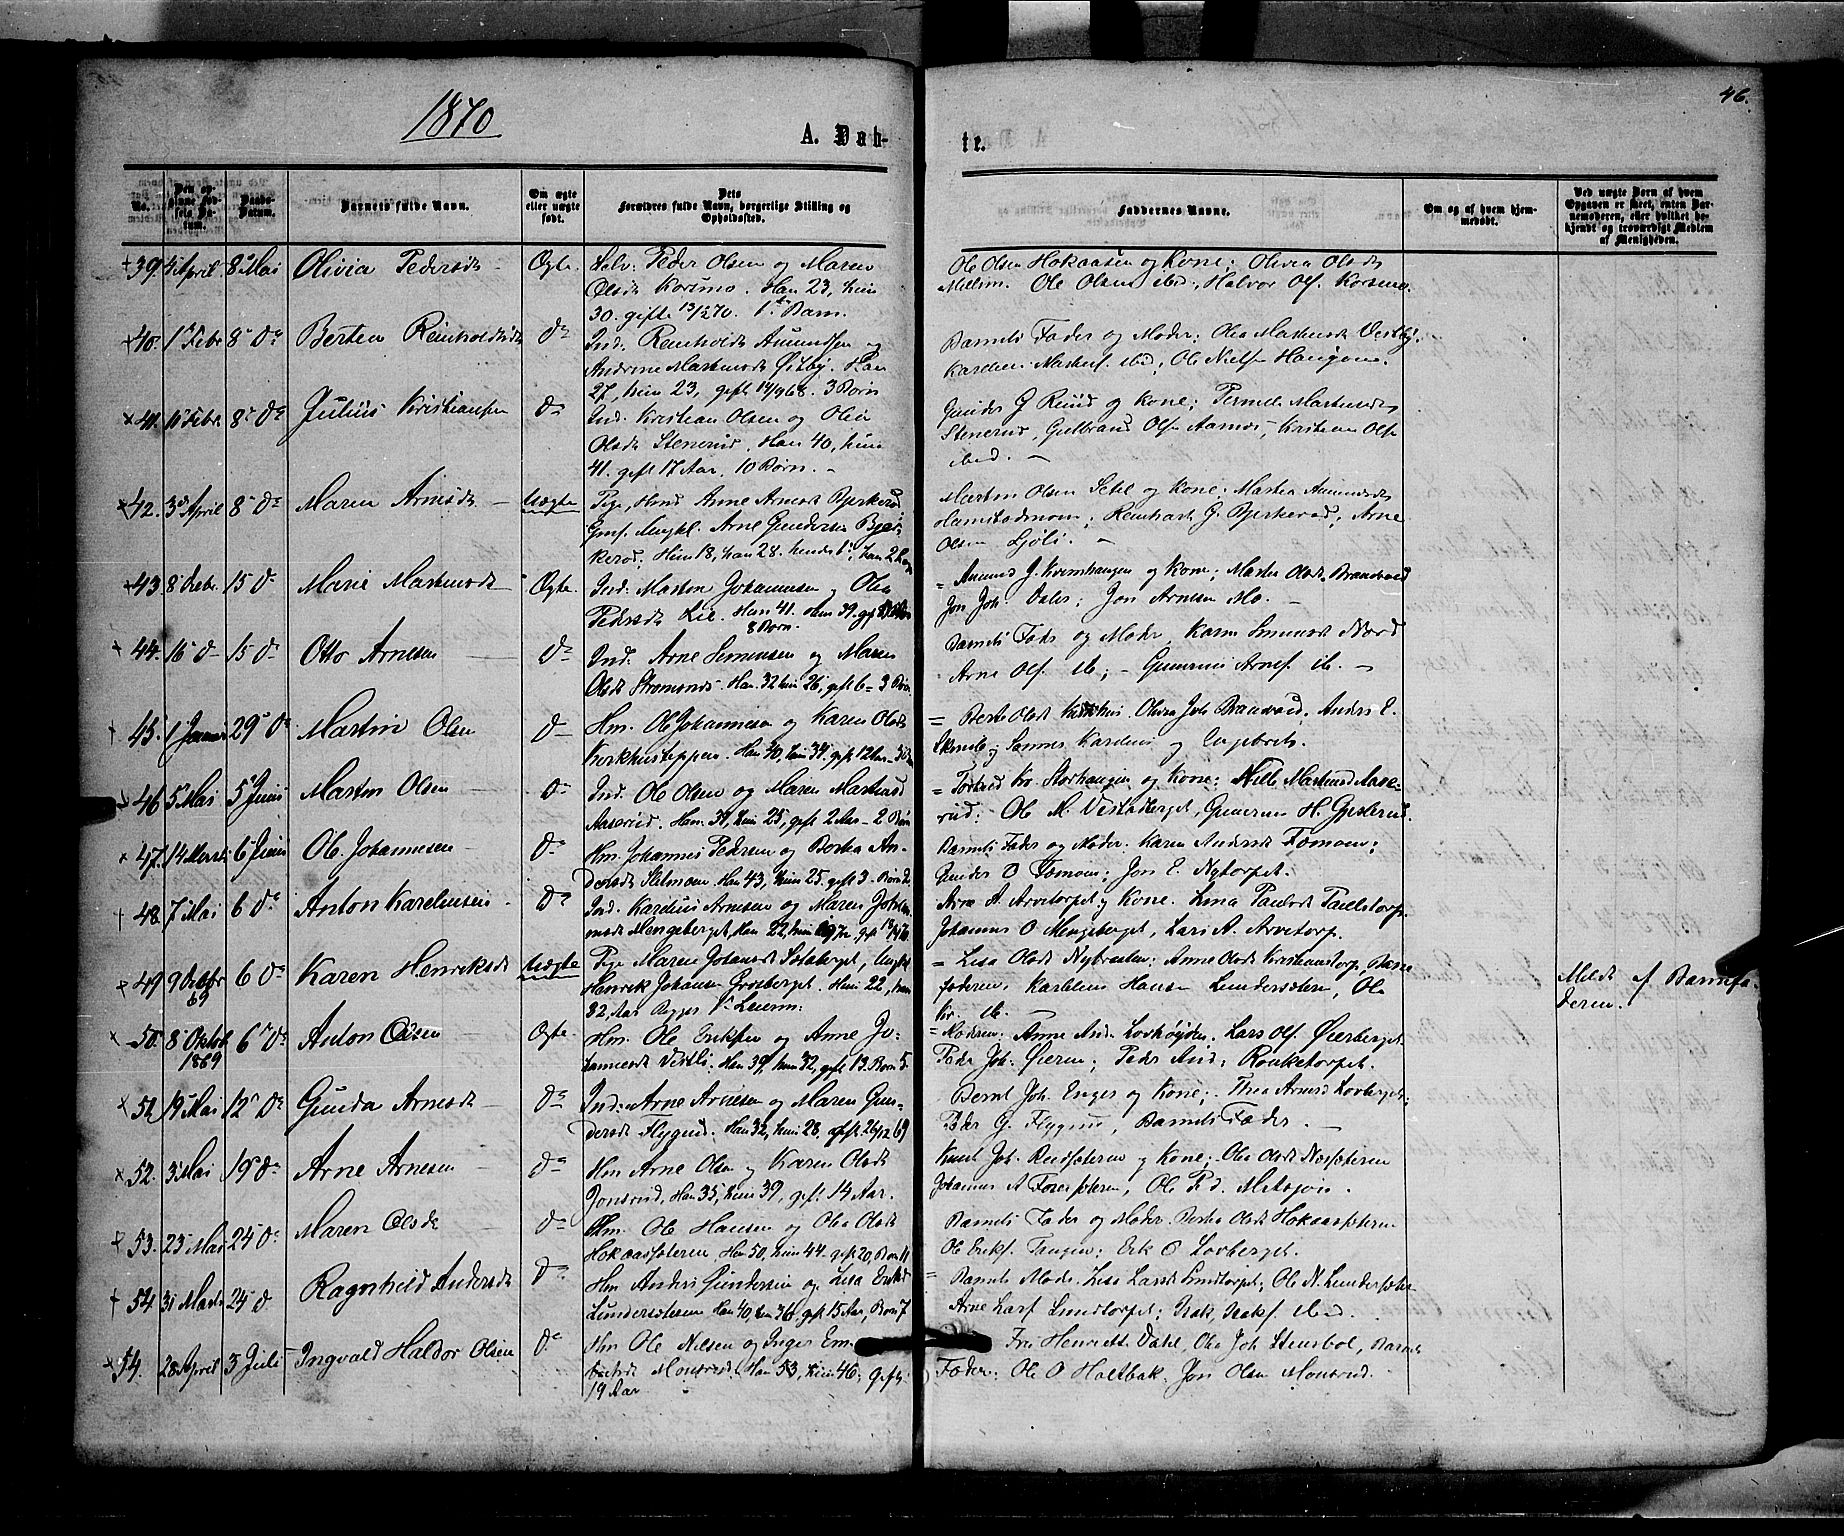 46.
1870
A. Dab-
te.
No.
Den op-
givne Fød-
sels Da-
tum.
Daabs-
Datum.
Barnets fulde Navn.
Om ægte
eller uægte
født.
Dets
Forældres fulde Navn, borgerlige Stilling og
Opholdssted.
Faddernes Navne.
Om og af hvem hjem-
medøbt.
Ved uægte Børn af hvem
Opgaven er skeet, enten Bar-
nemoderen, eller hvilket be-
kjendt og troværdigt Medlem
af Menigheden.
39 4 April 8 Mai Olivia Pedersdt Ægte. Selv: Peder Olsen og Maren
Olsdt Korsmo. Han 23, hun
30. gifte 13/2 70. 1ste Barn.
Ole Olsen Hokaasen og Kone; Olivia Olsdt
Ole Olsen ibid, Halvor Ols. Korsmo.
40. 1 Febr 8 Do Berten Reinholdtsdt Do Ind: Reinholdt Amundsen og
Andrine Martinsdt Østby. Han
27, hun 23, gift 14/9 68. 3 Børn
Barnets Fader og Moder; Olea Martinsdt Vestby,
Kardien Martins. ibid; Ole Niels. Haugen.
41. 11 Febr. 8 Do Julius Kristiansen Do Ind: Kristian Olsen og Olea
Olsdt Stenerud. Han 40, hun
41. gift 17 Aar, 10 Børn. –
Gunder G Ruud og Kone; Pernille Martinsdt
Stenerud, Gulbrand Ols. Aamos, Kristian Ols.
ibid. –
42. 3 April 8 Do Maren Arnesdt – Uægte Pige, Anne Arnesdt Bjerkerud
Ungkl. Arne Gundersen Bjer-
kerud, Hun 18, han 28. hendes 1ste, han 2
Martin Olsen Sætre og Kone; Martea Amundsdt
Hamstadmoen; Reinhart G. Bjerkerud; Arne
Olsen Sjøli. –
43 8 Febr. 15 Do Marie Martinsdt – Ægte. Ind: Martin Johannesen og Olea
Pedersdt Lie. Han 41. Hun 39, gift
8 Børn.
= Amund J. Kvernhaugen og Kone; Martea Olsdt Brandvold
Jon Joh. Dales; Jon Arnesen Mo. –
44. 16 D– 15 Do Otto Arnesen – Do Ind: Arne Simensen og Maren
Olsdt Strømsnes. Han 32 hun 26, gift 6 – 3 Børn
Barnets Fader og Moder, Karen Simensdt Nord
Arne Ols. ib; – Gunerius Arnes. ib. –
45. 1 Januar 29 Do Martin Olsen D– Hm. Ole Johannesen og Karen Olsdt
Kirkhusteppen. Han 40, hun 34. gift 12 Aar –
= Berte Olsdt Kirkhus. Olivia Joh Brandvold, Anders E.
og Engebret.
46 5 Mai 5 Juni Martin Olsen D– Ind. Ole Olsen og Maren Martinsd
Aaserud. Han 39, hun 25, gift 2 Aar – 2 Børn
= Torkild Kr. Storhaugen og Kone; Nille Martinsd Aase-
rud: Ole M. Vestadberget, Gunerius H. Gjesterud.
47. 14 Marts 6 Juni Ole Johannesen – Do Hm. Johannes Pedersen og Bertha An-
dersdt Sletmoen. Han 43, hun 25. gift 3. Børn
Barnets Fader og Moder. Karen Andersdt Tomoen;
Gunder O Tomoen; Jon E. Nytorpet.
48. 7 Mai 6 Do Anton Karelinsen. Do Ind. Karelius Arnesen og Maren Johan-
nesdt Mengeberget, Han 22, hun
Arne A. Arvetorpet og Kone. Lina Paulsdt Paulstorp.
Johannes O Mengeberget, Lars A. Arvetorp.
49 9 Decbr 69 6 Do Karen Henriksdt Uægte Pige Maren Johansdt Sætaberget, Ungkl
Henrik Johansen Grøsberget. Hun 22, han
32, Aar Begges 1ste Leierm:
= Lisa Olsdt Nybraaten; Anne Olsdt Kristianstorp, Barne
faderen, Karelius Hansen Lundersæteren, Ole
Kr. ib. –
Meldt af Barnefa-
deren.
50. 8 Oktob 1869 6 Do Anton Olsen Ægte. Hm. Ole Eriksen og Anne Jo-
hannesdt Vestli. Han 39, hun 32, gift 13. Børn 5.
= Moderen: Anne And. Lovhøiden. Lars Ols. Øierberget.
Peder Joh. Øieren; Peder And. Ronketorpet.
51 19 Mai 12 Do Gunda Arnesdt – Do Ind: Arne Arnesen og Maren Gun-
dersdt Flygind. Han 32, hun 28, gift 26/12 69
Bernt Joh. Enger og Kone; Thea Arnesd Lovberget;
Peder G. Flygind, Barnets Fader. –
52. 3 Mai 19 Do Arne Arnesen – Do Hm Arne Olsen og Karen Olsdt
Jonsrud, Han 35, hun 39, gift 14 Aar.
Knut Joh. Rudsæteren og Kone; Olea Olsdt Næssæteren
Johannes A Fossersæteren, Ole Pd. Mitsjøen.
53. 23 Mai 24 Do Maren Olsdt – Do Hm. Ole Hansen og Olea Olsdt
Hokaassæteren Han 50, hun 44. gift 20, Børn 11
Barnets Fader og Moder. Berthe Olsdt Hokaassæteren
Ole Eriks. Haugen; Erik O Lovberget.
54. 31 Marts 24 D. Ragnhild Andersdt Do Hm Anders Gundersen og Lisa Eriksdt
Lundersæteren Han 40, hun 36 gift 15 Aar, Børn 7
= Barnets Moder. Lisa Larsdt Lundtorpet; Ole N. Lundersæter
Arne Lars. Lundtorpet; Isak Isaks. ibid.
54. 28 April 3 Juli Ingvald Haldor Olsen Do Hm Ole Nielsen og Inger Em-
bretsdt Monsrud. Han 53, hun 46; gift
19 Aar
Frk Henriette Dahl, Olea Joh Stensbøl, Barnets
Fader; Ole O Holtbak. Jon Olsen Monsrud.